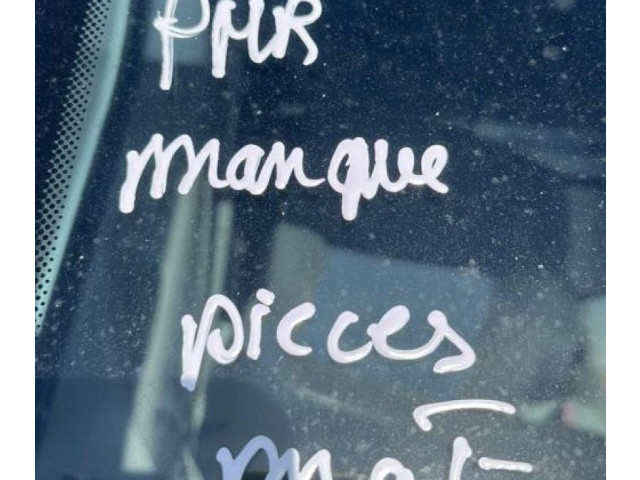 PMR
manque
pieces
mot